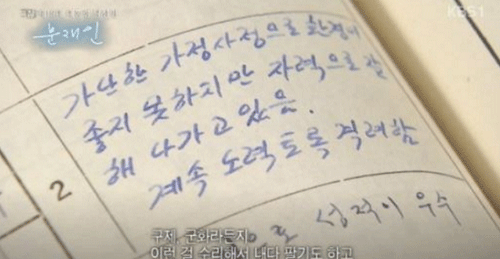 문재인
KBS1
가난한 가정사정으로 환경이
좋지 못하지만 자력으로 잘
해 나가고 있음.
계속 노력토록 격려함
2
으로 성적이 우수
구제, 군화라든지
이런 걸 수리해서 내다 팔기도 하고